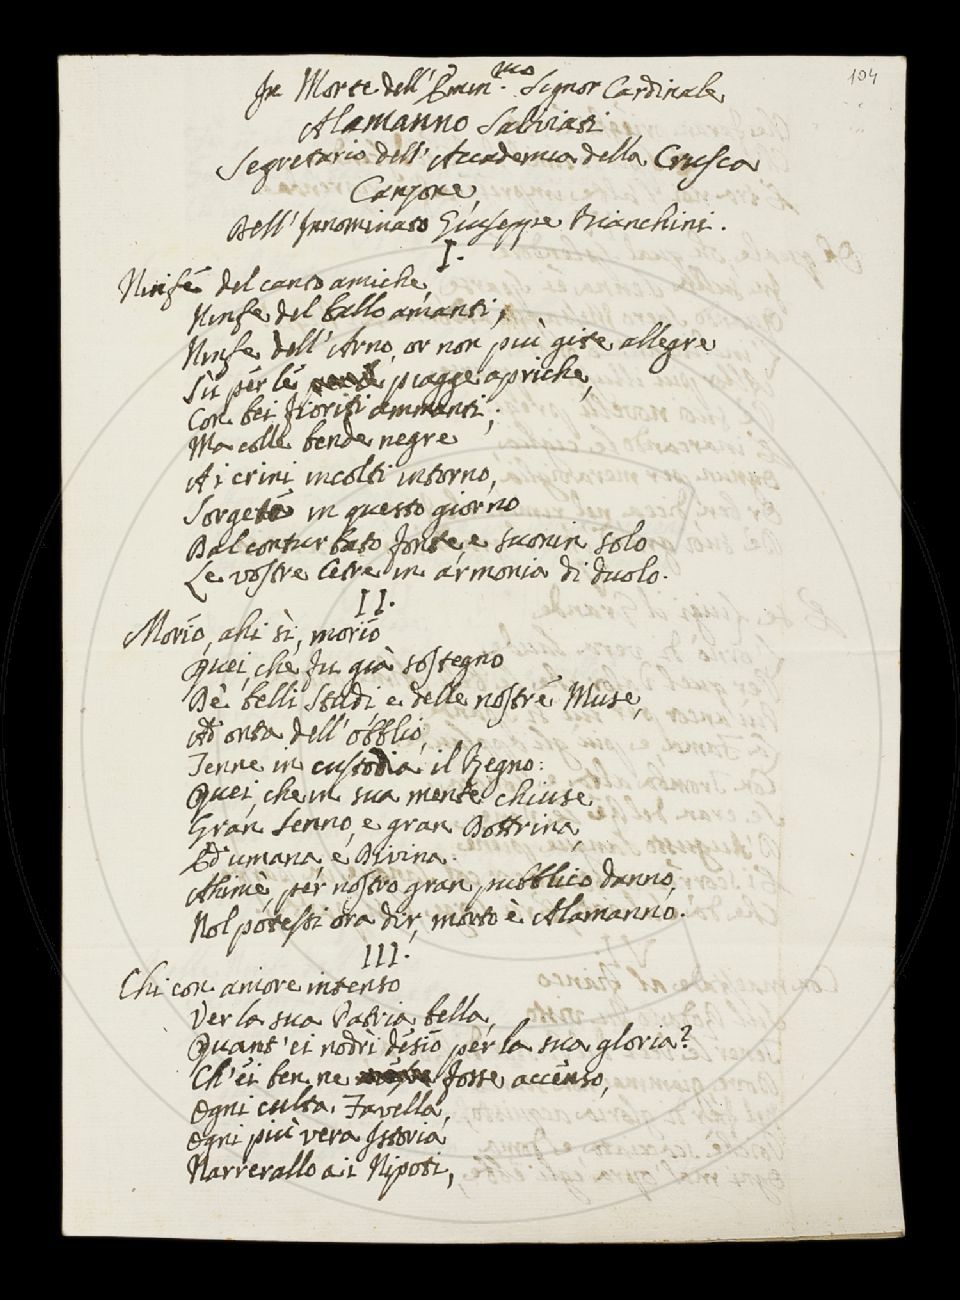 104
In Morte dell' Emin.mo Signor Cardinale
Alamanno Salviati
Segretario dell' Accademia della Crusca
Canzone
Dell' Innominato Giuseppe Bianchini.
I.
Ninfe del canto amiche,
Ninfe del ballo amanti,
Ninfe dell' Arno, or non più gite allegre
Sù per le piagge apriche,
Con bei fioriti ammanti;
Ma colle bende negre
Ai crini incolti intorno,
Sorgete in questo giorno
Dal conturbato fonte, e suonin solo
Le vostre Cetre in armonia di duolo.
II.
Morìo, ahi sì, morìo
Quei, che fu già sostegno
De' belli Studi, e delle nostre Muse,
Ad onta dell' obblio,
Tenne in custodia il Regno:
Quei, che in sua mente chiuse
Gran Senno, e gran Dottrina,
Ed umana, e Divina.
Ahimè, per nostro gran pubblico danno,
Nol potessi ora dir, morto è Alamanno.
III.
Chi con amore intenso
Ver la sua Patria bella,
Quant' ei nodrì desìo per la sua gloria?
Ch' ei ben ne fosse accenso,
Ogni culta Favella,
Ogni più vera Istoria
Narrerallo ai Nipoti,